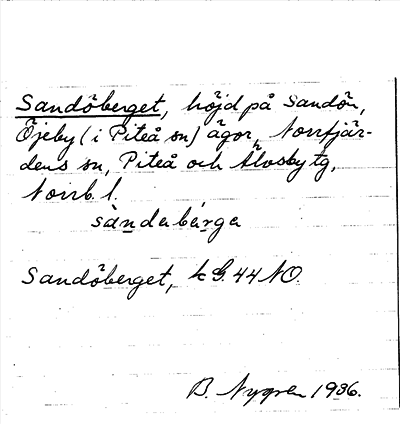 Sandöberget, höjd på Sandön,
Öjeby (i Piteå sn) ägor, Norrfjär-
dens sn, Piteå och Älvsby tg,
Norrb. l.
sàndəbærgə
Sandöberget, k G. 44 NO.
B. Nygren 1936.